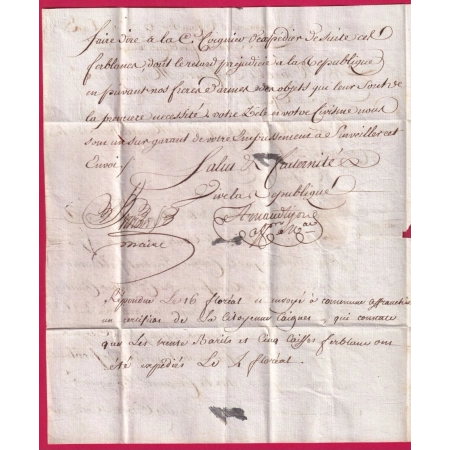 faire dire à la C. Coignier d'expedier de suite ces
ferblancs, dont le retard prejudicie a la Republique
en privant nos freres d'armes des objets qui leur sont de
la premiere necessité votre Zele et votre Civisme nous
sont un sur garant de votre Empressement a Surveiller cet
Envoi /
Salut & fraternité
Vive la Republique
Arnaud
maire
Répondu Le 16 floréal et envoyé à commune affranchie
un certificat de La Citoyenne Coignet, qui constate
que Les trente Barils et Cinq Caisses ferblanc ont
été expédiés Le 4 floréal.